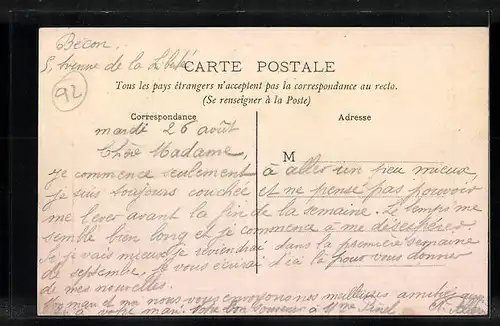 Becon.
5, Avenue de la Liberté
92
CARTE POSTALE
Tous les pays étrangers n'acceptent pas la correspondance au recto.
(Se renseigner à la Poste)
Correspondance
Adresse
M
mardi 26 août
Chère Madame,
je commence seulement à aller un peu mieux
je suis toujours couchée et ne pense pas pouvoir
me lever avant la fin de la semaine. Le temps me
semble bien long et je commence à me désespérer.
Si je vais mieux je reviendrai dans la première semaine
de septembre, je vous écrirai d'ici là pour vous donner
de mes nouvelles.
Maman et moi nous vous envoyons nos meilleures amitiés
à votre mari. bonjour à Mme